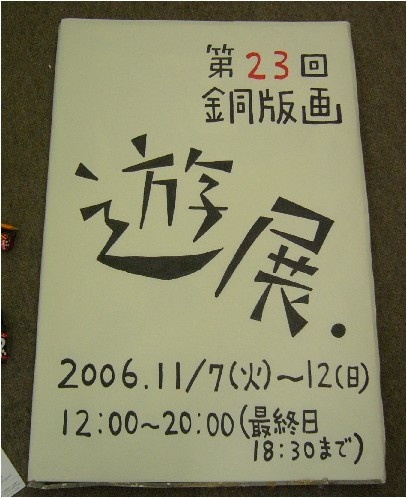 第23回
銅版画
遊展.
2006.11/7(火)～12(日)
12:00～20:00(最終日
18:30まで)